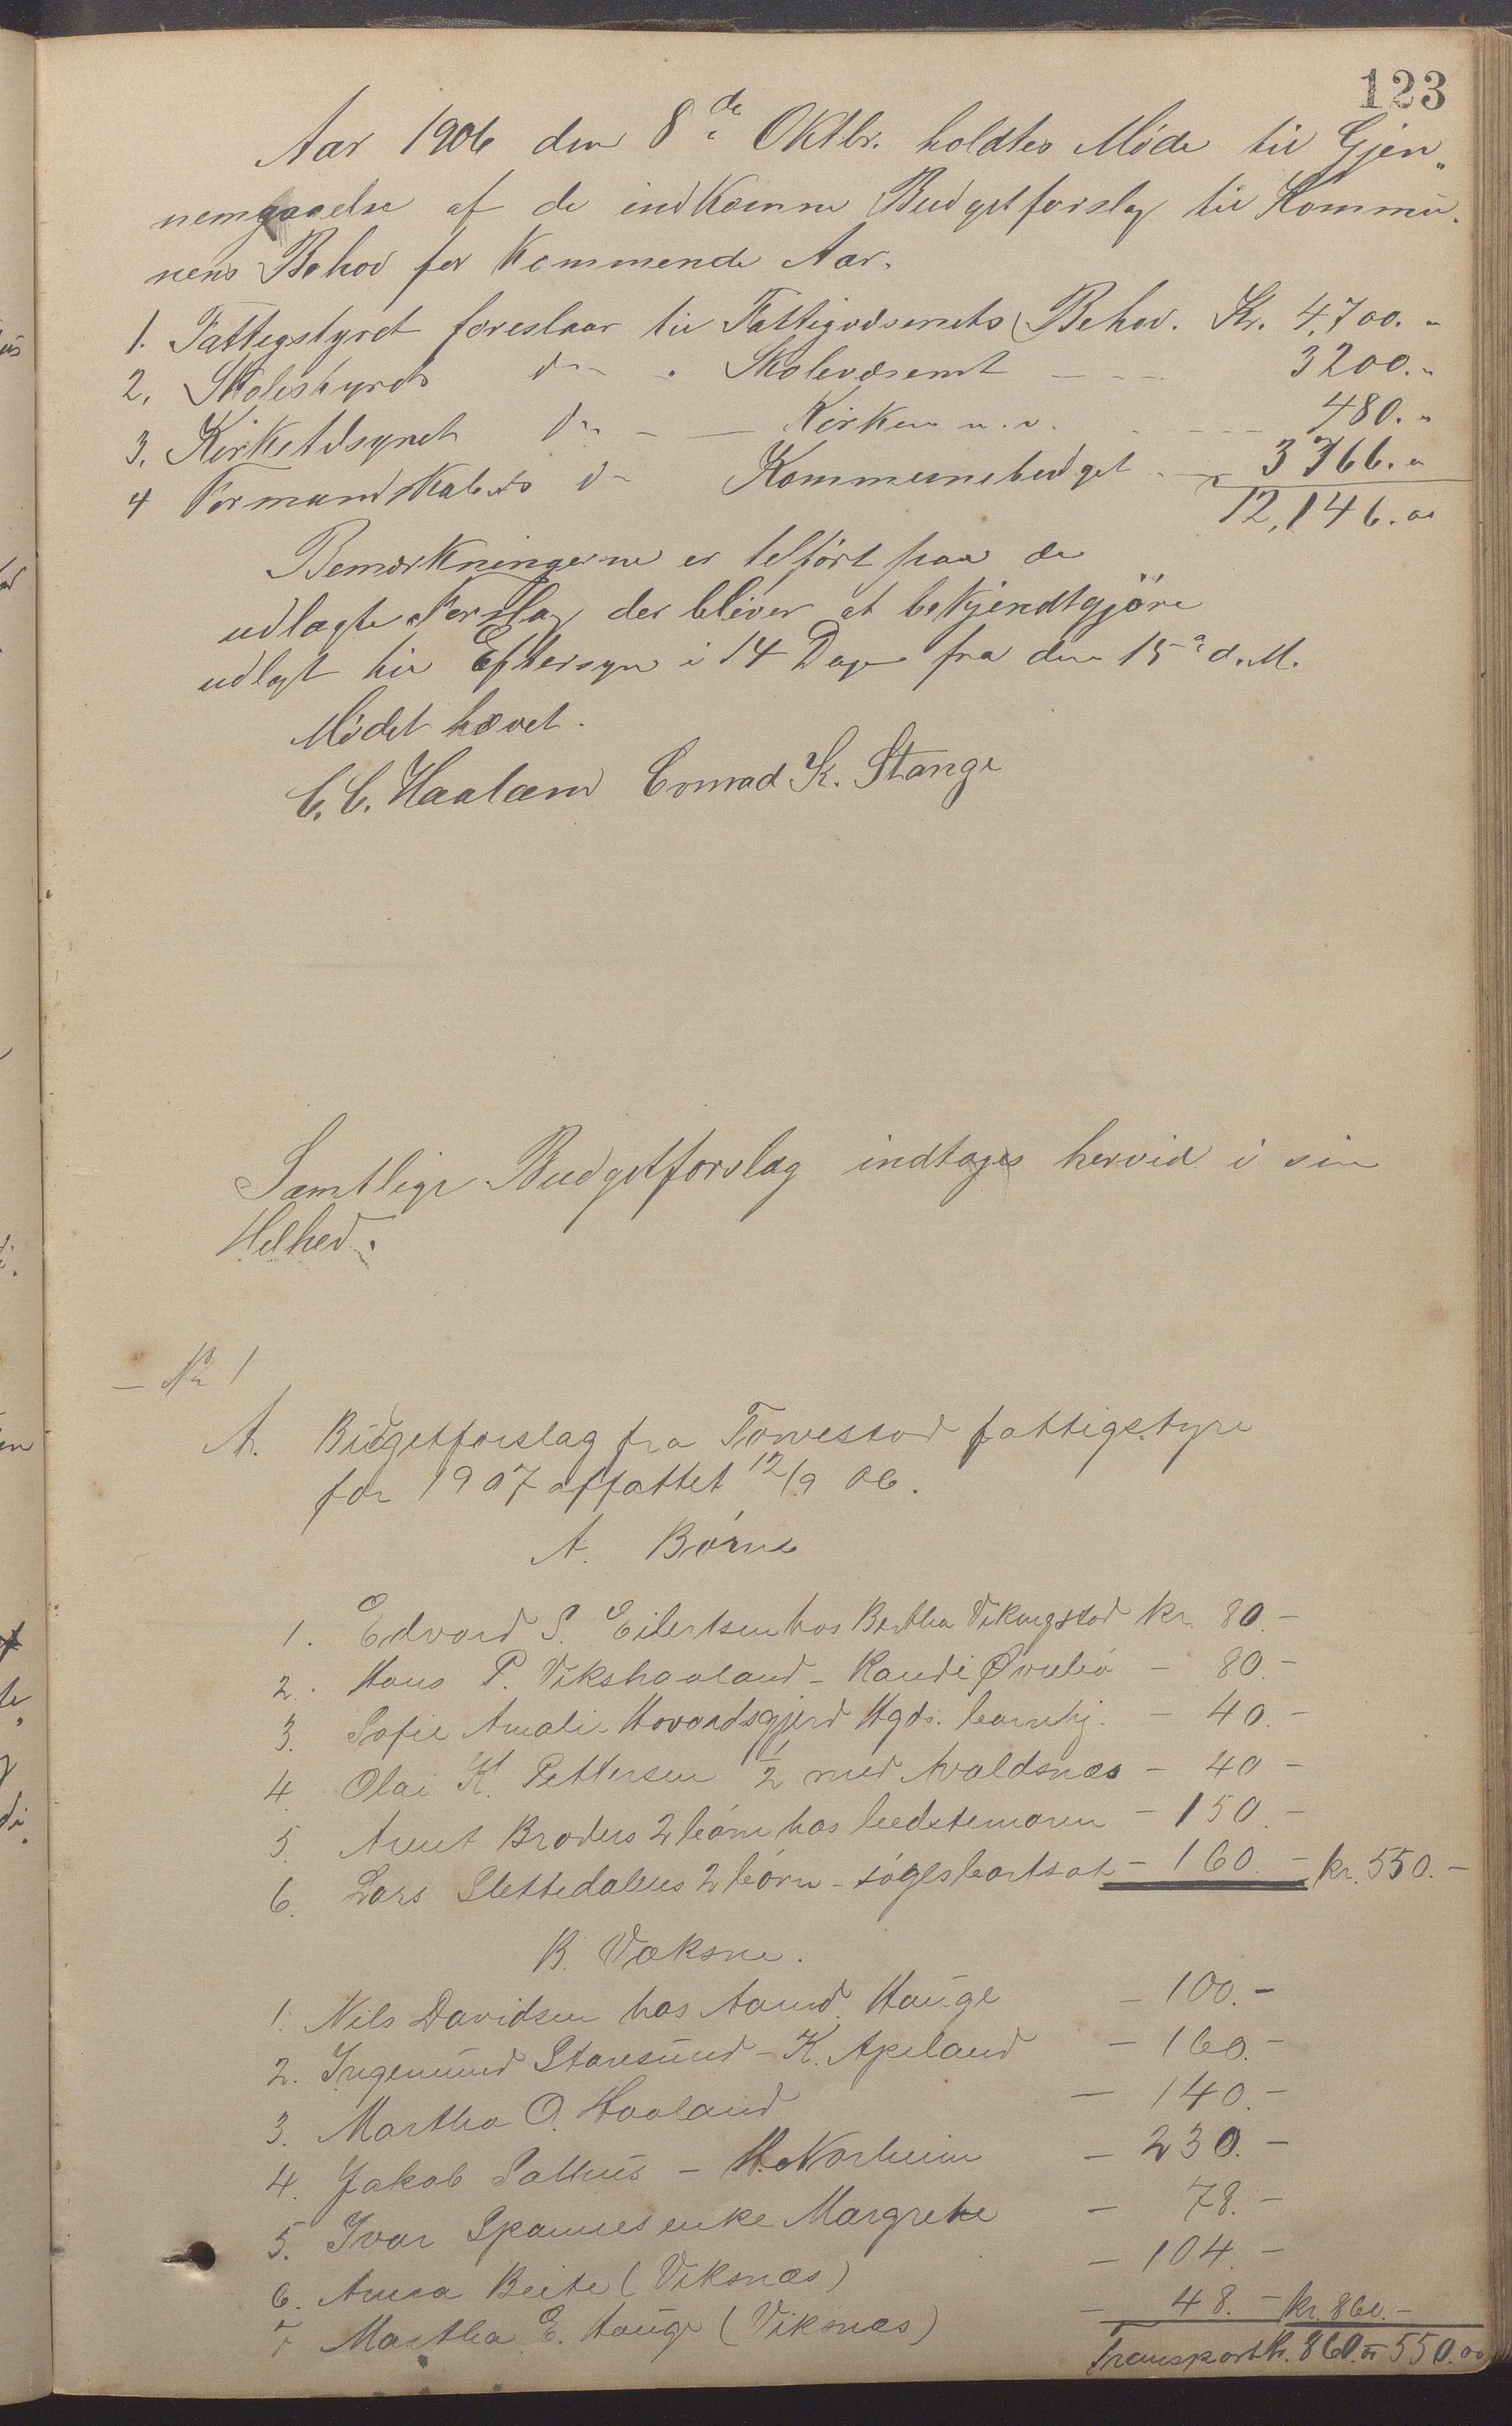 123
Aar 1906 den 8de Oktbr. holdtes Møde til Gjen„
nemgaaelse af de indkomne Budgetforslag til Kommu„
nens Behov for kommende Aar.
1. Fattigstyret foreslaar til Fattigvæsenets Behov. Kr. 4,700. „
2. Skolestyrets do „ Skolevæsenet — — 3200. „
3. Kirketilsynet do — — Kirken m. v. - - - 480. „
4 Formandskabets do Kommunebudget - - 3366. „
12,146.00
Bemærkningerne er tilført paa de
udlagte Forslag der bliver at bekjendtgjöre
udlagt til Eftersyn i 14 Dage fra den 15de d. M.
Mødet hævet.
C. C. Haaland Conrad K. Stange
Samtlige Budgetforslag indtages herved i sin
Helhed.
— No 1
A. Budgetforslag fra Torvestad fattigstyre
for 1907 affattet 12/9 06.
A. Børn
1. Edvard S. Eilertsen hos Bertha Vikingstad kr. 80.-
2. Hans P. Vikshaaland - Randi Øvrebø - 80.-
3. Sofie Amalie Hovardsgjerd Hgds. barnhj. - 40.-
4. Olai K. Pettersen 1/2 med Avaldsnæs - 40 -
5. Arent Broders 2 børn hos bedstemoren - 150.-
6. Lars Slettedales 2 børn - søges bortsat - 160.- kr. 550.-
B. Voksne.
1. Nils Davidsen hos Aamd. Hauge - 100.-
2. Ingemund Staresund - K. Apeland - 160.-
3. Martha O. Haaland - 140.-
4. Jakob Salhus - H. Norheim - 230.-
5. Ivar Spannes enke Margrete - 78.-
6. Anna Beite (Viksnæs) - 104.-
7 Martha E. Hauge (Viksnæs) - 48.- kr. 860.-
Transport kr. 860.00 550.00